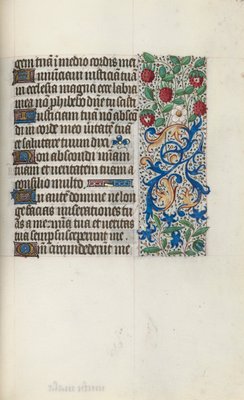 gem tuā ī medio cordis mei
Annūciaui iusticiā tuā
in ecclesia magna ecce labia
mea nō phibebo dñe tu scisti
Iusticiam tuā nō abscō
di in corde meo ueritatē tuā
et salutare tuum dixi
Non abscondi m̄iam
tuam et ueritatem tuam a
consilio multo
Tu autē domine ne lon
ge facias miserationes tu
as a me m̄ia tua et ueritas
tua semp susceperunt me
Qm̄ circundederūt me